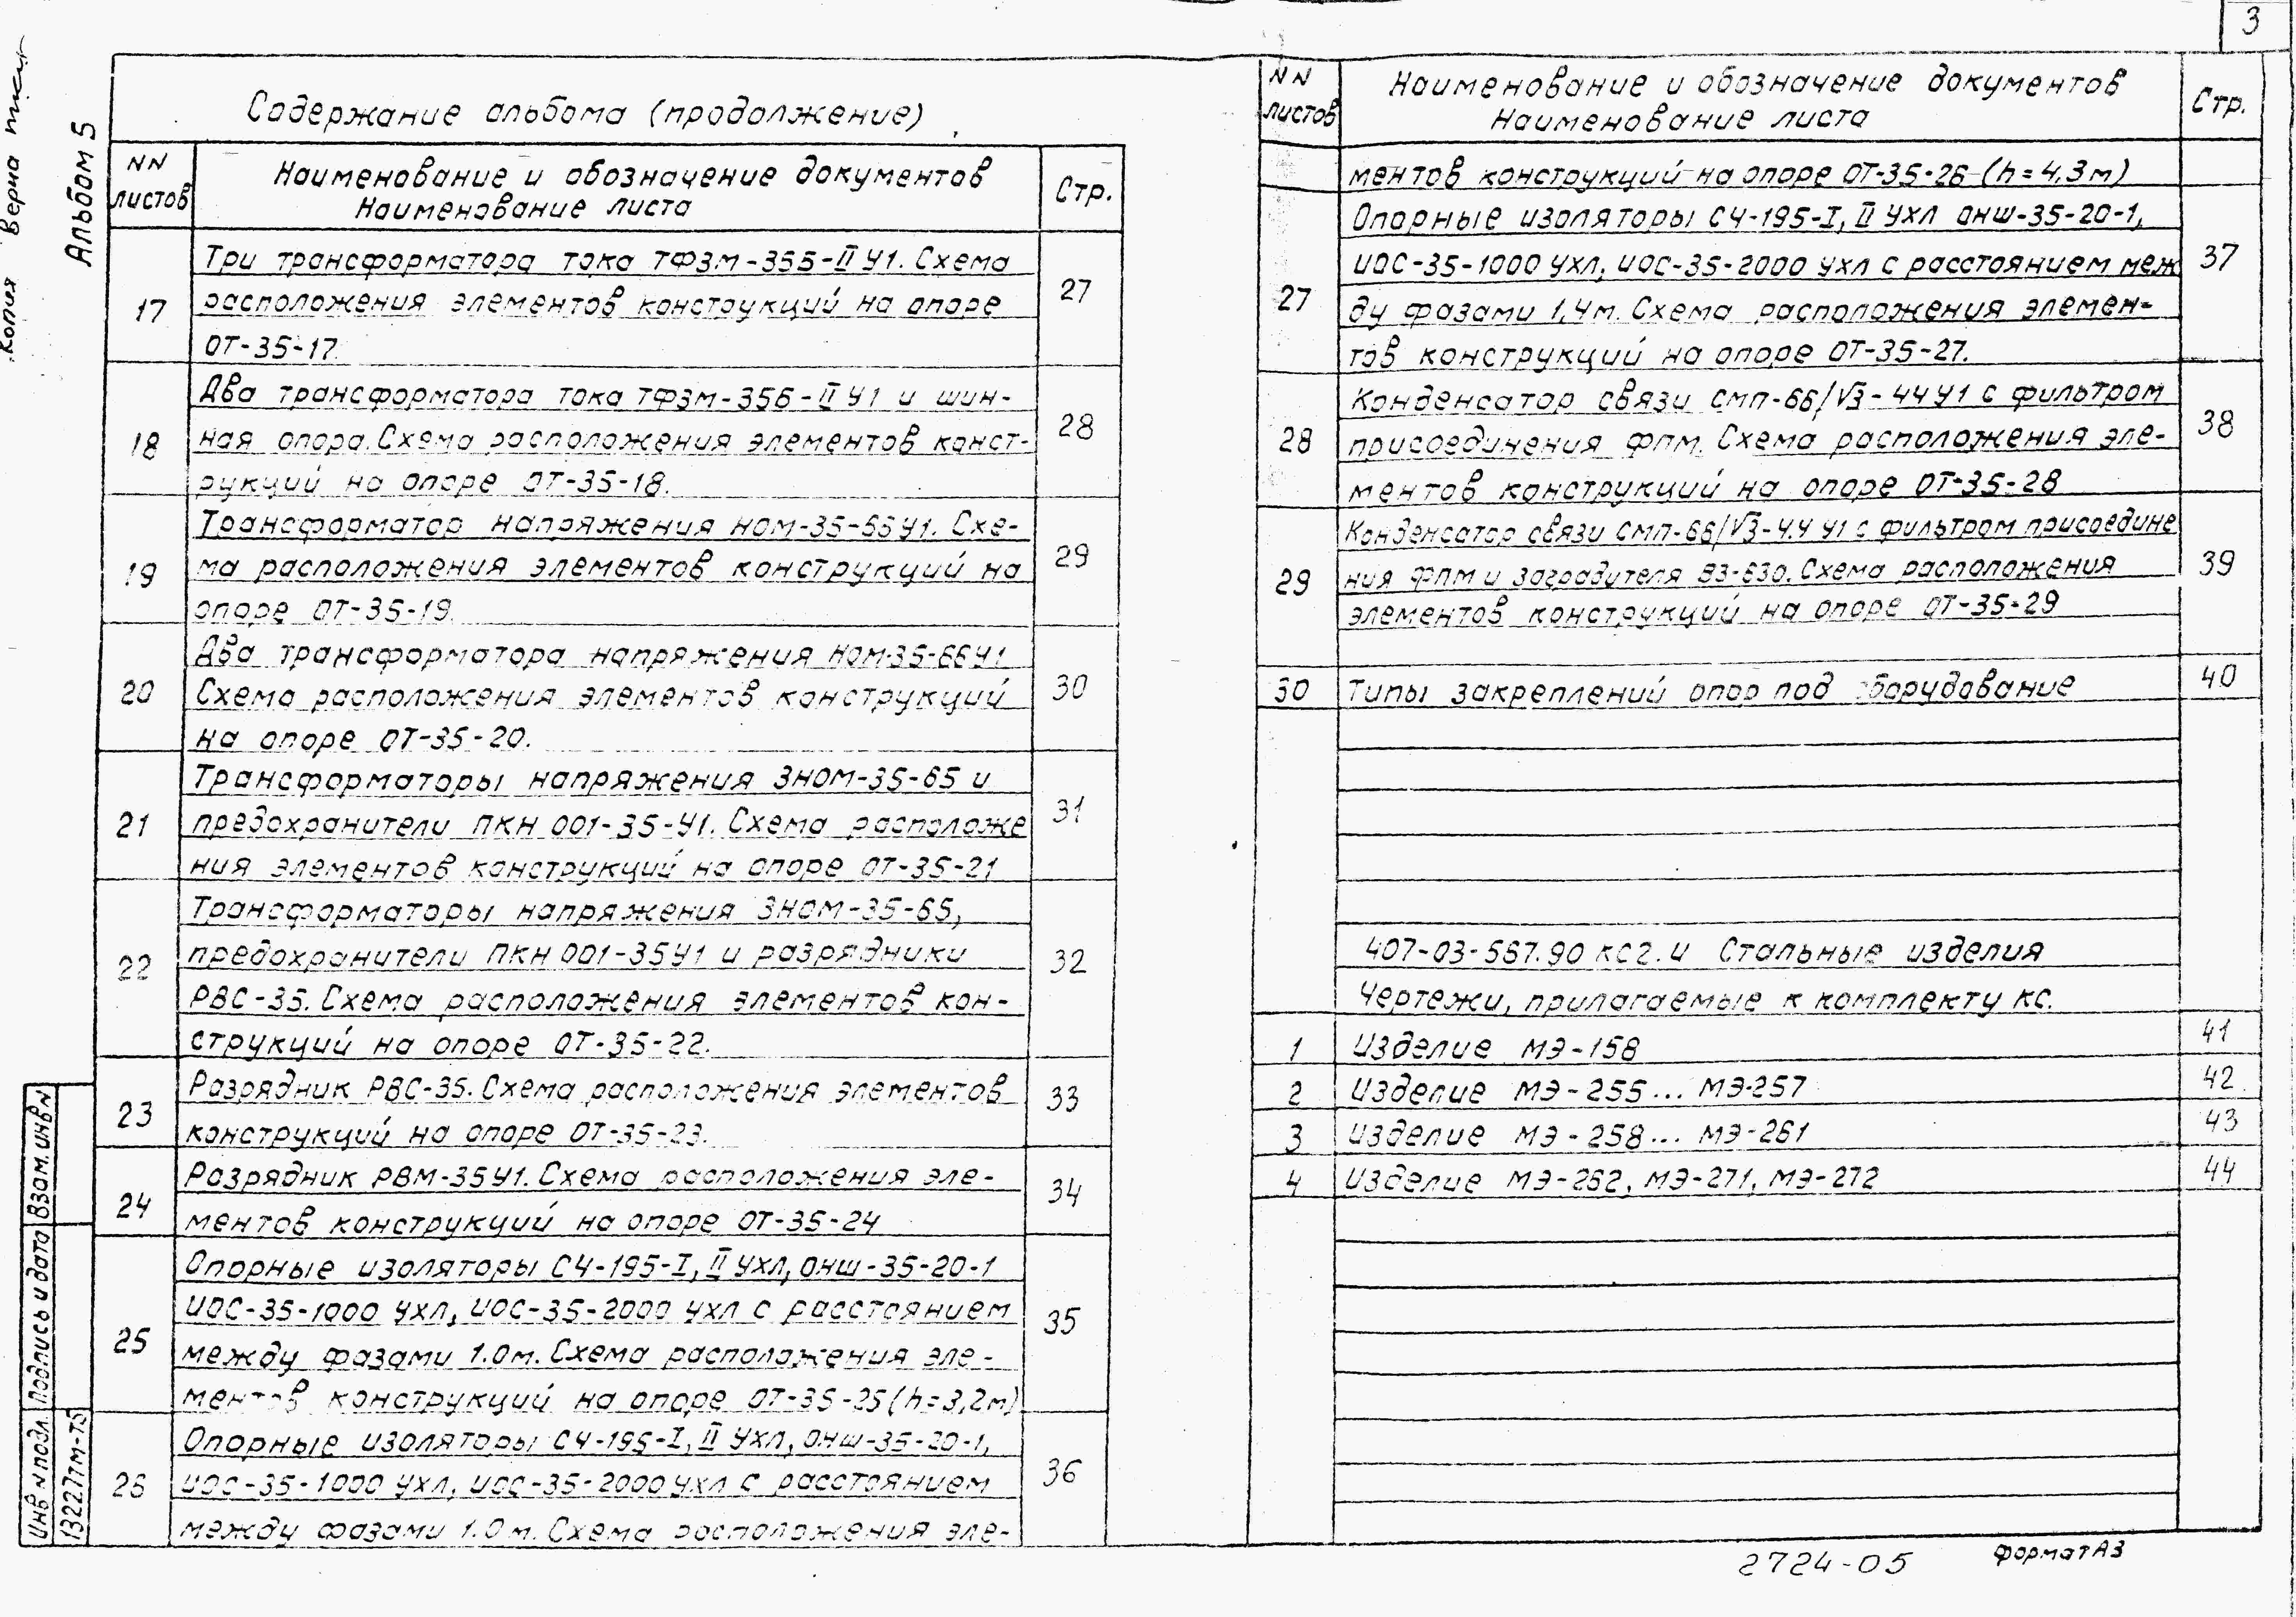 3
Копия Верна
Альбом 5
Содержание альбома (продолжение)
NN листов
Наименование и обозначение документов
Наименование листа
Стр.
17
Три трансформатора тока ТФЗМ-35Б-II У1. Схема
расположения элементов конструкций на опоре
ОТ-35-17.
27
18
Два трансформатора тока ТФЗМ-35Б-II У1 и шин-
ная опора. Схема расположения элементов конст-
рукций на опоре ОТ-35-18.
28
19
Трансформатор напряжения НОМ-35-66У1. Схе-
ма расположения элементов конструкций на
опоре ОТ-35-19.
29
20
Два трансформатора напряжения НОМ-35-66У1
Схема расположения элементов конструкций
на опоре ОТ-35-20.
30
21
Трансформаторы напряжения ЗНОМ-35-65 и
предохранители ПКН 001-35-У1. Схема расположе
ния элементов конструкций на опоре ОТ-35-21
31
22
Трансформаторы напряжения ЗНОМ-35-65,
предохранители ПКН 001-35У1 и разрядники
РВС-35. Схема расположения элементов кон-
струкций на опоре ОТ-35-22.
32
23
Разрядник РВС-35. Схема расположения элементов
конструкций на опоре ОТ-35-23.
33
24
Разрядник РВМ-35У1. Схема расположения эле-
ментов конструкций на опоре ОТ-35-24
34
25
Опорные изоляторы СЧ-195-I, II УХЛ, ОНШ-35-20-1
ИОС-35-1000 УХЛ, ИОС-35-2000 УХЛ с расстоянием
между фазами 1.0м. Схема расположения эле-
ментов конструкций на опоре ОТ-35-25 (h=3,2м)
35
26
Опорные изоляторы СЧ-195-I, II УХЛ, ОНШ-35-20-1,
ИОС-35-1000 УХЛ, ИОС-35-2000 УХЛ с расстоянием
между фазами 1.0м. Схема расположения эле-
36
NN листов
Наименование и обозначение документов
Наименование листа
Стр.
ментов конструкций на опоре ОТ-35-26 (h=4,3м)
27
Опорные изоляторы СЧ-195-I, II УХЛ ОНШ-35-20-1,
ИОС-35-1000 УХЛ, ИОС-35-2000 УХЛ с расстоянием меж
ду фазами 1,4м. Схема расположения элемен-
тов конструкций на опоре ОТ-35-27.
37
28
Конденсатор связи СМП-66/√3-4,4У1 с фильтром
присоединения ФПМ. Схема расположения эле-
ментов конструкций на опоре ОТ-35-28
38
29
Конденсатор связи СМП-66/√3-4.4 У1 с фильтром присоедине
ния ФПМ и заградителя ВЗ-630. Схема расположения
элементов конструкций на опоре ОТ-35-29
39
30
Типы закреплений опор под оборудование
40
407-03-567.90 КС2.И Стальные изделия
Чертежи, прилагаемые к комплекту КС.
1
Изделие МЭ-158
41
2
Изделие МЭ-255... МЭ-257
42
3
Изделие МЭ-258... МЭ-261
43
4
Изделие МЭ-262, МЭ-271, МЭ-272
44
Инв N подл. Подпись и дата Взам. инв N
13227тм-т5
2724-05
Формат А3